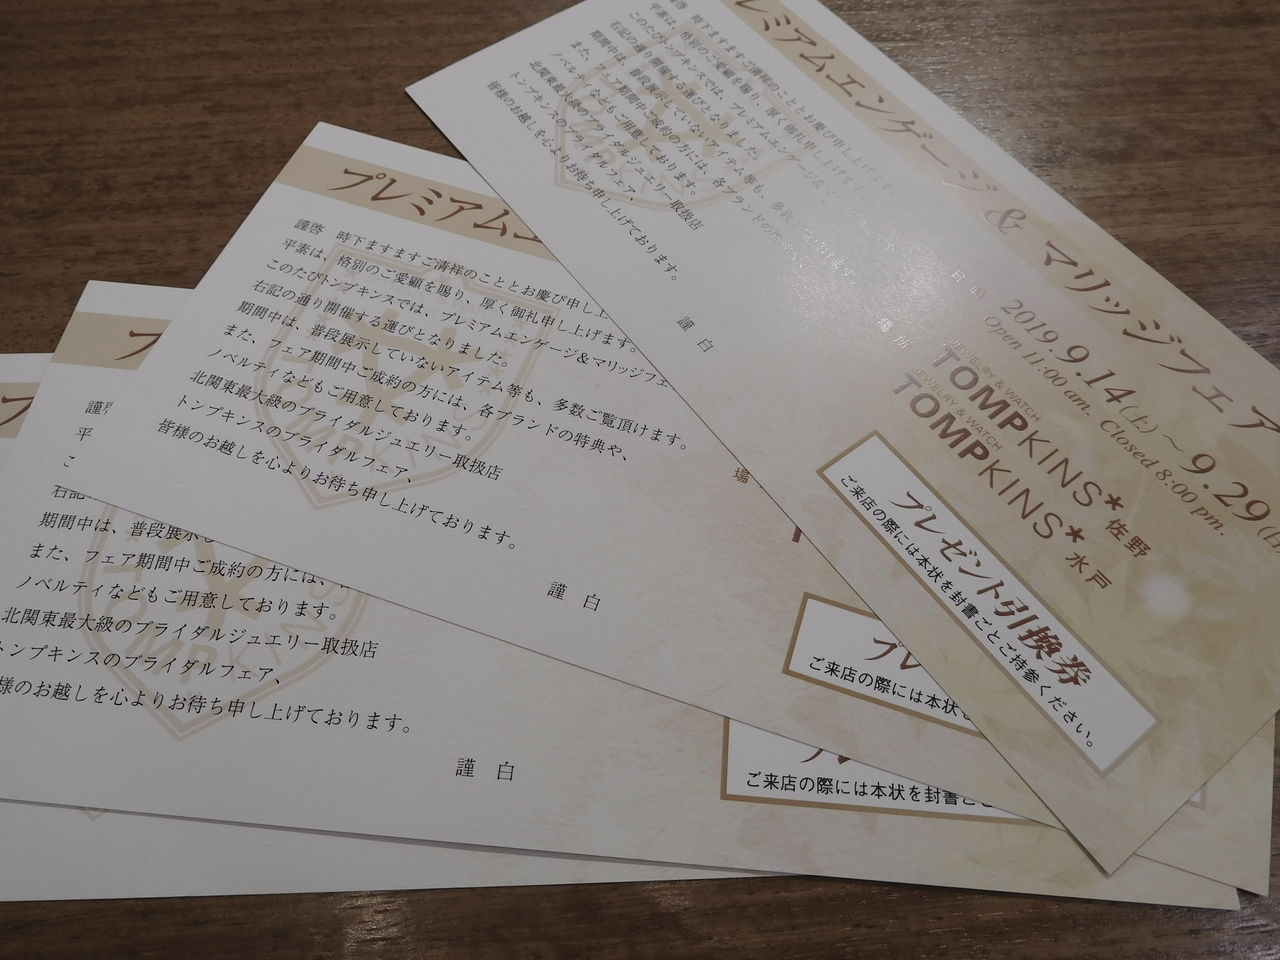 プレミアムエンゲージ & マリッジフェア
時下ますますご清祥のこととお慶び申し上げます。
平素は、格別のご愛顧を賜り、厚く御礼申し上げます。
このたびトンプキンスでは、プレミアムエンゲージ&
右記の通り開催する運びとなりました。
期間中は、普段展示していないアイテム等も、多数
また、フェア期間中ご成約の方には、各ブランドの
ノベルティなどもご用意しております。
北関東最大級のブライダルジュエリー取扱店
トンプキンスのブライダルフェア、
皆様のお越しを心よりお待ち申し上げております。
謹 白
2019.9.14(土)～9.29(日
Open 11:00 am. Closed 8:00 pm.
JEWELRY & WATCH
TOMPKINS* 佐野
JEWELRY & WATCH
TOMPKINS* 水戸
プレゼント引換券
ご来店の際には本状を封書ごとご持参ください。
プレミアムエ
謹啓 時下ますますご清祥のこととお慶び申し上
平素は、格別のご愛顧を賜り、厚く御礼申し上げます。
このたびトンプキンスでは、プレミアムエンゲージ&マリッジフェ
右記の通り開催する運びとなりました。
期間中は、普段展示していないアイテム等も、多数ご覧頂けます。
また、フェア期間中ご成約の方には、各ブランドの特典や、
ノベルティなどもご用意しております。
北関東最大級のブライダルジュエリー取扱店
トンプキンスのブライダルフェア、
皆様のお越しを心よりお待ち申し上げております。
謹 白
場
プレ
ご来店の際には本状を
プ
謹啓
平
こ
右記
期間中は、普段展示し
また、フェア期間中ご成約の方には、
ノベルティなどもご用意しております。
北関東最大級のブライダルジュエリー取扱店
トンプキンスのブライダルフェア、
様のお越しを心よりお待ち申し上げております。
謹 白
プレ
ご来店の際には本状を封書ごと